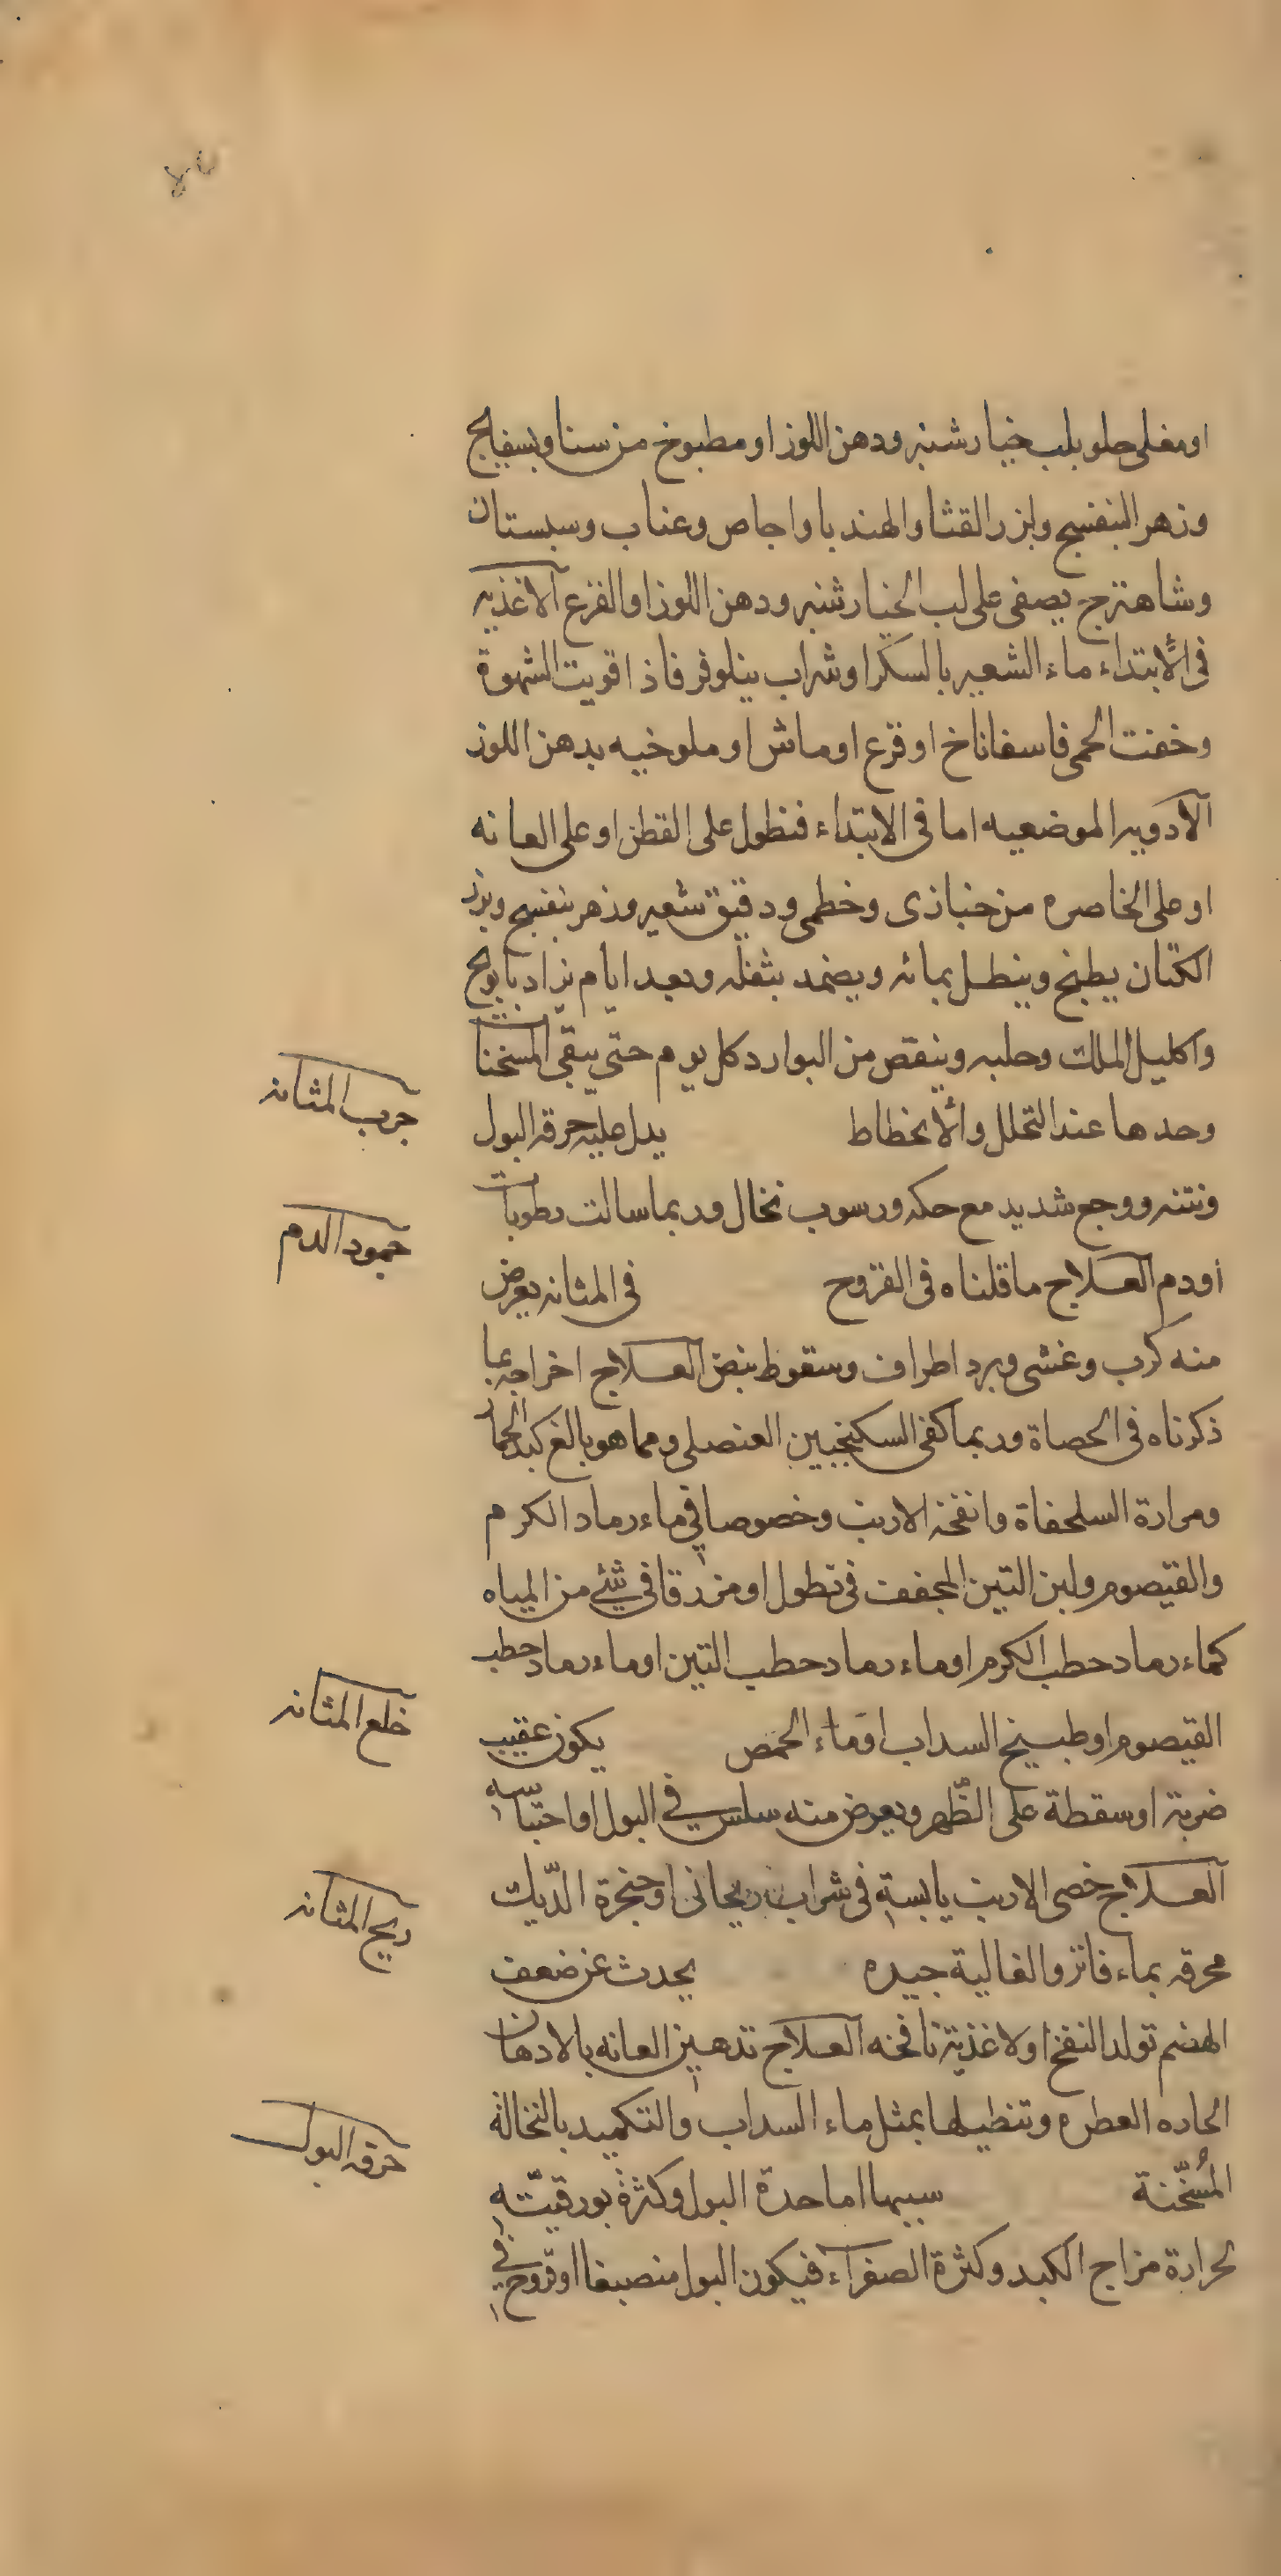 او مغلى حلو بلب خيار شنبر ودهن اللوز او مطبوخ من سنا وبسفايج
وزهر البنفسج وبزر القثا والهندبا واجاص وعناب وسبستان
وشاهترج يصفى على لب الخيار شنبر ودهن اللوز او القرع الاغذيه
فى الأبتداء ماء الشعير بالسكر او شراب نيلوفر فاذا قويت الشهوة
وخفت الحمى فاسفاناخ او قرع او ماش او ملوخيه بدهن اللوز
الادويه الموضعيه اما فى الابتداء فنطول على القطن او على العانه
او على الخاصره من خبازى وخطمى ودقيق شعير وزهر بنفسج وبزر
الكتان يطبخ وينطل بمائه ويضمد بثفله وبعد ايام يزاد بابونج
واكليل الملك وحلبه وينقص من البوارد كل يوم حتى يبقى المسخنات
جرب المثانه
وحدها عند التحلل والأنحطاط يدل عليه حرقه البول
ونتنه ووجع شديد مع حكه ورسوب نخال وربما سالت رطوبات
جمود الدم
او دم العلاج ما قلناه فى القروح فى المثانه يعرض
منه كرب وغشى وبرد اطراف وسقوط نبض العلاج اخراجه بما
ذكرناه فى الحصاة وربما كفى السكنجبين العنصلى ومما هو بالغ كبد الحمار
ومرارة السلحفاة وانفخه الارنب وخصوصا فى ماء رماد الكرم
والقيصوم ولبن التين المجفف فى نطول او مزرقا فى شئ من المياه
كماء رماد حطب الكرم او ماء رماد حطب التين او ماء رماد حطب
خلع المثانه
القيصوم او طبيخ السداب او ماء الحمص يكون عقيب
ضربة او سقطة على الظّهر ويعرض منه سلس فى البول او احتباسه
العلاج خصى الارنب يابسة فى شراب ريحانى او حنجرة الدّيك
ريح المثانه
محرقه بماء فاتر والغالية جيده يحدث عن ضعف
الهضم تولد النفخ او لاغذية نافخه العلاج تدهين العانه بالادهان
الحاده العطره وتنطيلها بمثل ماء السداب والتكميد بالنخالة
حرقه البول
المُسَخّنة سببها اما حدة البول وكثرة بورقيّته
لحرارة مزاج الكبد وكثرة الصفراء فيكون البول منصبغا او قروح فى